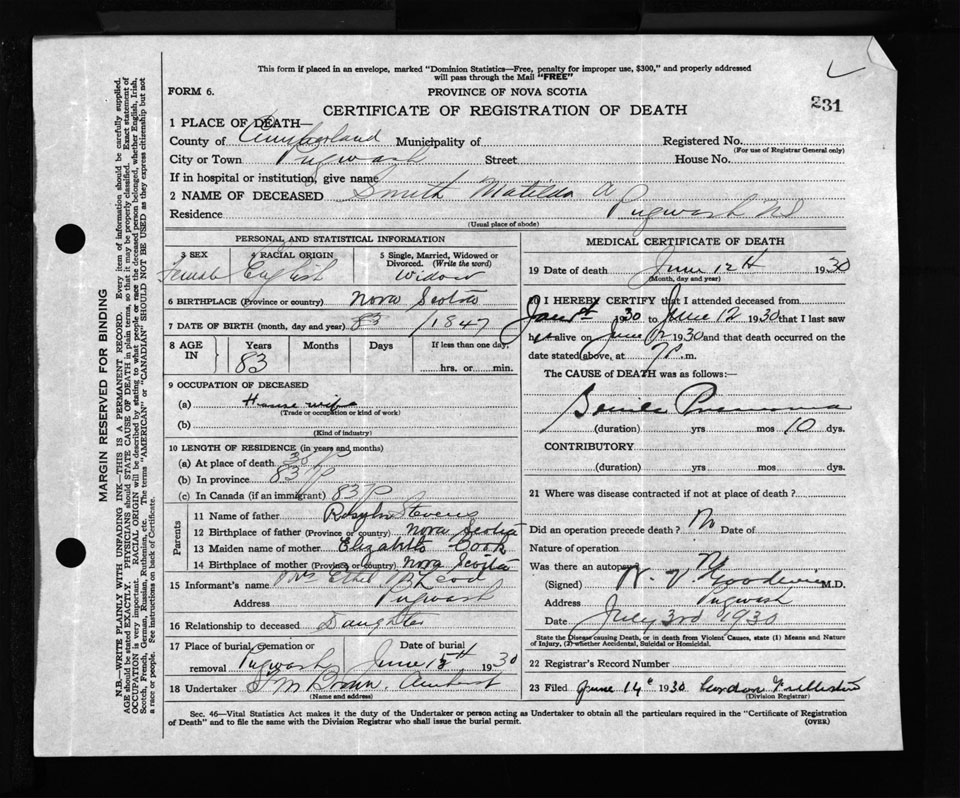 This form if placed in an envelope, marked "Dominion Statistics—Free, penalty for improper use, $300," and properly addressed
will pass through the Mail "FREE"
FORM 6.
PROVINCE OF NOVA SCOTIA
CERTIFICATE OF REGISTRATION OF DEATH
231
1 PLACE OF DEATH—
County of Cumberland Municipality of
Registered No.
(For use of Registrar General only)
City or Town Pugwash Street House No.
If in hospital or institution, give name
2 NAME OF DECEASED Smith Matilda A
Residence Pugwash NS
(Usual place of abode)
PERSONAL AND STATISTICAL INFORMATION
3 SEX Female
4 RACIAL ORIGIN English
5 Single, Married, Widowed or Divorced. (Write the word) Widow
6 BIRTHPLACE (Province or country) Nova Scotia
7 DATE OF BIRTH (month, day and year) 83 / 1847
8 AGE IN Years 83 Months Days If less than one day hrs. or min.
9 OCCUPATION OF DECEASED
(a) House wife
(Trade or occupation or kind of work)
(b)
(Kind of industry)
10 LENGTH OF RESIDENCE (in years and months)
(a) At place of death
(b) In province 83
(c) In Canada (if an immigrant) 83
Parents
11 Name of father Stevens
12 Birthplace of father (Province or country) Nova Scotia
13 Maiden name of mother Elizabeth Cook
14 Birthplace of mother (Province or country) Nova Scotia
15 Informant's name Mrs Ethel McLeod
Address Pugwash
16 Relationship to deceased Daughter
17 Place of burial, cremation or removal Pugwash
Date of burial June 1930
18 Undertaker Brown. Amherst
(Name and address)
MEDICAL CERTIFICATE OF DEATH
19 Date of death June 12th 1930
(Month, day and year)
20 I HEREBY CERTIFY that I attended deceased from
1930 to June 12 1930 that I last saw
h alive on June 1930 and that death occurred on the
date stated above, at 7 p.m.
The CAUSE of DEATH was as follows:—
Senile Pneumonia
(duration) yrs mos 10 dys.
CONTRIBUTORY
(duration) yrs mos dys.
21 Where was disease contracted if not at place of death?
Did an operation precede death? No Date of
Nature of operation
Was there an autopsy N
(Signed) Goodwin M.D.
Address Pugwash
Date July 3rd 1930
State the Disease causing Death, or in death from Violent Causes, state (1) Means and Nature
of Injury, (2) whether Accidental, Suicidal or Homicidal.
22 Registrar's Record Number
23 Filed June 14 1930 Gordon
(Division Registrar)
Sec. 46—Vital Statistics Act makes it the duty of the Undertaker or person acting as Undertaker to obtain all the particulars required in the "Certificate of Registration
of Death" and to file the same with the Division Registrar who shall issue the burial permit.
(OVER)
MARGIN RESERVED FOR BINDING
N.B.—WRITE PLAINLY WITH UNFADING INK—THIS IS A PERMANENT RECORD. Every item of information should be carefully supplied.
AGE should be stated EXACTLY. PHYSICIANS should STATE CAUSE OF DEATH in plain terms, so that it may be properly classified. Exact statement of
OCCUPATION is very important. RACIAL ORIGIN will be described by stating to what people or race the deceased person belonged, whether English, Irish,
Scotch, French, German, Russian, Ruthenian, etc. The terms "AMERICAN" or "CANADIAN" SHOULD NOT BE USED as they express citizenship but not
a race or people. See instructions on back of Certificate.